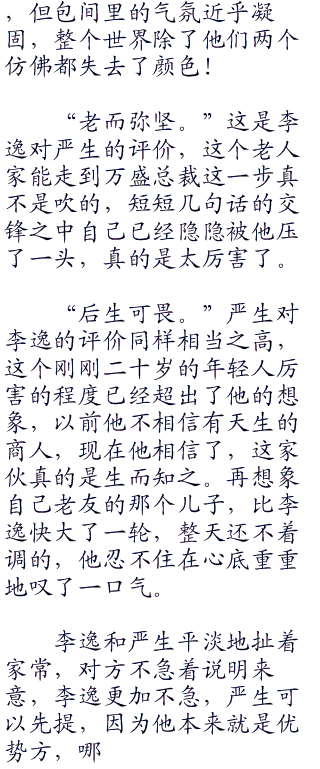 ，但包间里的气氛近乎凝
固，整个世界除了他们两个
仿佛都失去了颜色！
“老而弥坚。”这是李
逸对严生的评价，这个老人
家能走到万盛总裁这一步真
不是吹的，短短几句话的交
锋之中自己已经隐隐被他压
了一头，真的是太厉害了。
“后生可畏。”严生对
李逸的评价同样相当之高，
这个刚刚二十岁的年轻人厉
害的程度已经超出了他的想
象，以前他不相信有天生的
商人，现在他相信了，这家
伙真的是生而知之。再想象
自己老友的那个儿子，比李
逸快大了一轮，整天还不着
调的，他忍不住在心底重重
地叹了一口气。
李逸和严生平淡地扯着
家常，对方不急着说明来
意，李逸更加不急，严生可
以先提，因为他本来就是优
势方，哪